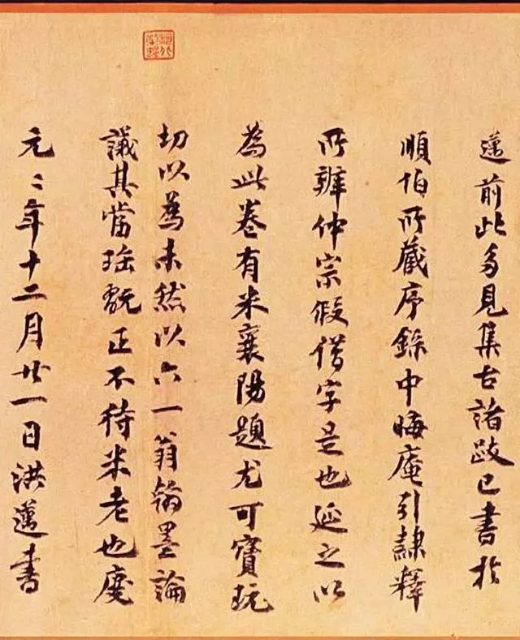 邁前此多見集古諸跋已書於
順伯所藏序錄中晦庵引隸釋
所辨仲宗假借字是也延之以
為此卷有米襄陽題尤可寶玩
切以為未然以六一翁翰墨論
議其當珤翫正不待米老也慶
元二年十二月廿一日洪邁書